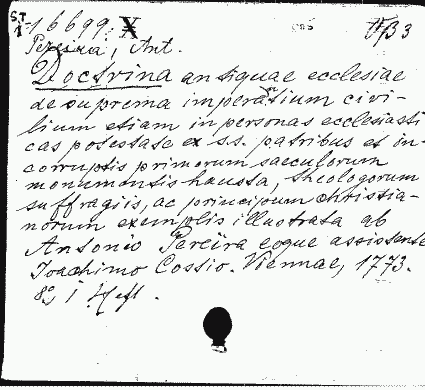 ST 1 - 16699. X
Pereira, Ant.
Doctrina antiquae ecclesiae
de suprema imperantium civi-
lium etiam in personas ecclesiasti
cas potestate ex s.s. patribus et in-
corruptis primorum saeculorum
monumentis hausta, theologorum
suffragiis, ac principum christia-
norum exemplis illustrata ab
Antonio Pereira eoque assistente
Joachimo Cossio. Viennae, 1773.
8°, 1 Heft.